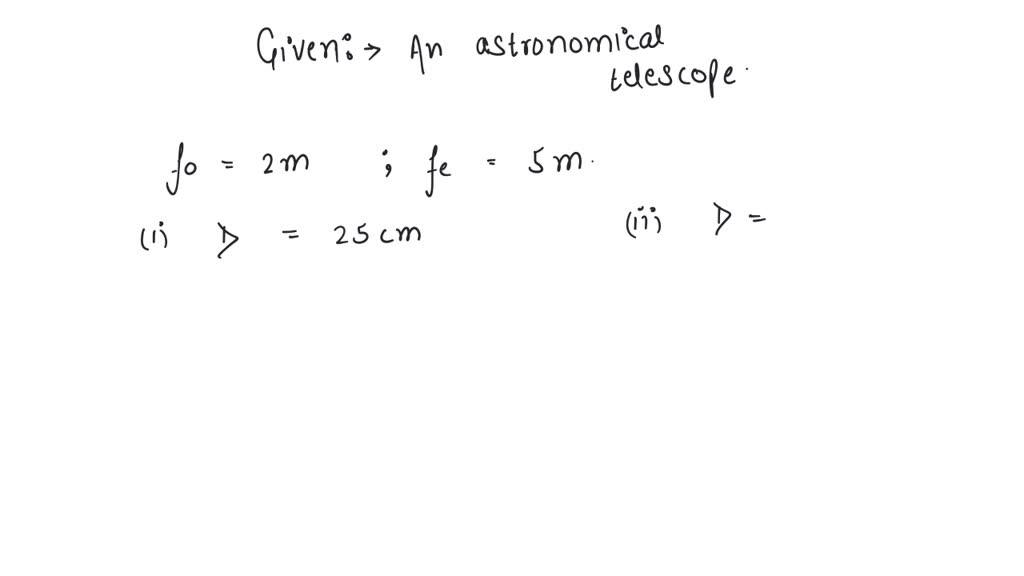 Given:→ An astronomical
telescope.
fo = 2m ; fe = 5m.
(i) D = 25cm (ii) D =